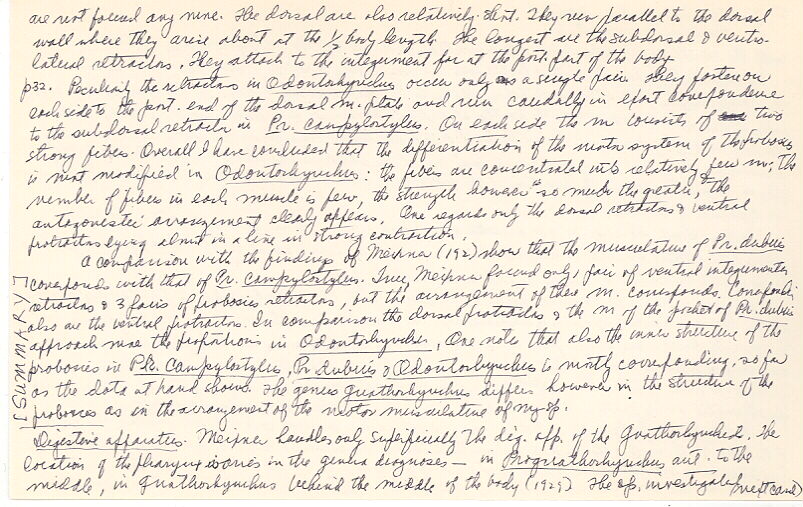 are not found any more. The dorsal are also relatively short. They run parallel to the dorsal
wall where they arise about at the ½ body length. The longest are the subdorsal & ventro-
lateral retractors. They attach to the integument far at the post. part of the body
p32. Peculiarly the retractors in Odontorhynchus occur only as a single pair. They fasten on
each side to the post. end of the dorsal m. plate and run caudally in exact correspondence
to the subdorsal retractor in Pr. campylostylus. On each side the m consists of two
strong fibers. Overall I have concluded that the differentiation of the motor system of the proboscis
is most modified in Odontorhynchus: the fibers are concentrated into relatively few m; the
number of fibers in each muscle is few, the strength however is so much the greater, & the
antagonistic arrangement clearly appears. One regards only the dorsal retractors & ventral
protractors lying almost in a line in strong contraction.
A comparison with the findings of Meixner (192) show that the musculature of Pr. dubius
corresponds with that of Pr. campylostylus. True, Meixner found only 1 pair of ventral integument
retractors & 3 pairs of proboscis retractors, but the arrangement of these m. corresponds. Corresponding
also are the ventral protractors. In comparison the dorsal protractors & the m of the pocket of Pr. dubius
approach more the proportions in Odontorhynchus. One notes that also the inner structure of the
proboscis in Pr. Campylostylus, Pr dubius & Odontorhynchus is mostly corresponding, so far
as the data at hand shows. The genus Gnathorhynchus differs however in the structure of the
proboscis as in the arrangement of the motor musculature of my sp.
[SUMMARY]
Digestive apparatus. Meixner handles only superficially the dig. app. of the Gnathorhynchid. The
location of the pharynx in the genera diagnoses — in Prognathorhynchus ant. to the
middle, in Gnathorhynchus behind the middle of the body (1929) The sp. investigated (next card)